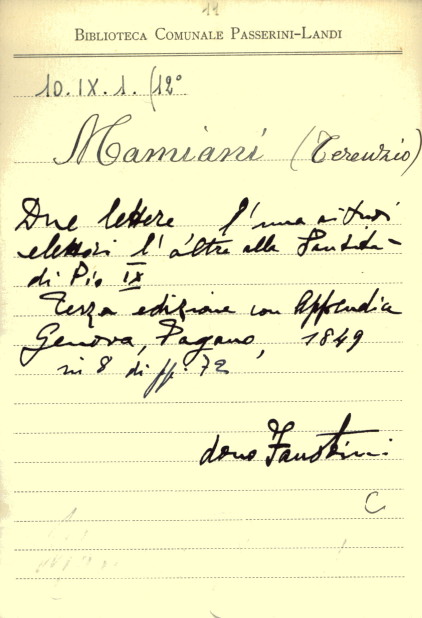 11
BIBLIOTECA COMUNALE PASSERINI-LANDI
10. IX. 1. (12°
Mamiani (Terenzio)
Due lettere l'una ai suoi
elettori l'altra alla Santità
di Pio IX
Terza edizione con Appendice
Genova, Pagano, 1849
in 8 di ff. 72
dono Faustini
C